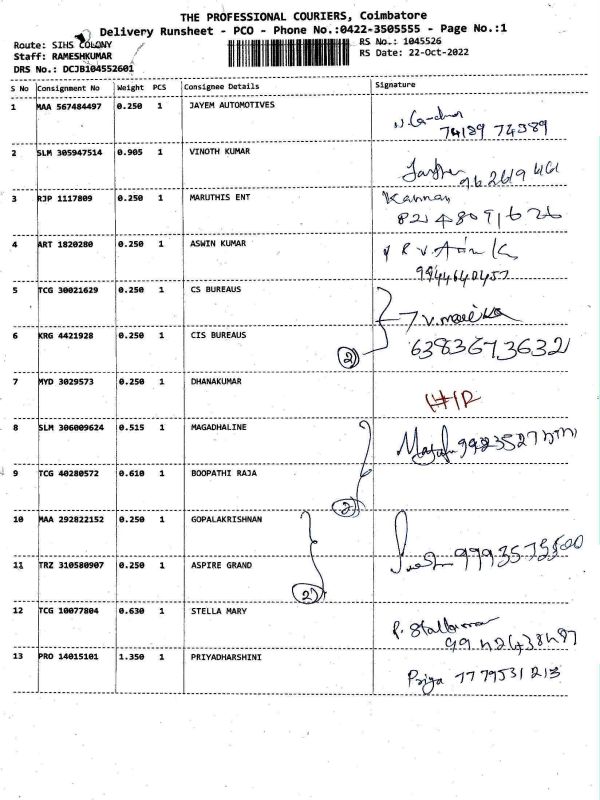 THE PROFESSIONAL COURIERS, Coimbatore
Delivery Runsheet - PCO - Phone No.:0422-3505555 - Page No.:1
Route: SIHS COLONY
RS No.: 1045526
Staff: RAMESHKUMAR
RS Date: 22-Oct-2022
DRS No.: DCJB104552601
S No Consignment No Weight PCS Consignee Details Signature
1 MAA 567484497 0.250 1 JAYEM AUTOMOTIVES
74189 74389
2 SLM 305947514 0.905 1 VINOTH KUMAR
3 RJP 1117809 0.250 1 MARUTHIS ENT Kannan
4 ART 1820280 0.250 1 ASWIN KUMAR
5 TCG 30021629 0.250 1 CS BUREAUS
6 KRG 4421928 0.250 1 CIS BUREAUS
2 6383673632
7 MYD 3029573 0.250 1 DHANAKUMAR
8 SLM 306009624 0.515 1 MAGADHALINE
9 TCG 40280572 0.610 1 BOOPATHI RAJA
2
10 MAA 292822152 0.250 1 GOPALAKRISHNAN
11 TRZ 310580907 0.250 1 ASPIRE GRAND
2
12 TCG 10077804 0.630 1 STELLA MARY
13 PRO 14015101 1.350 1 PRIYADHARSHINI
Priya 7779531213